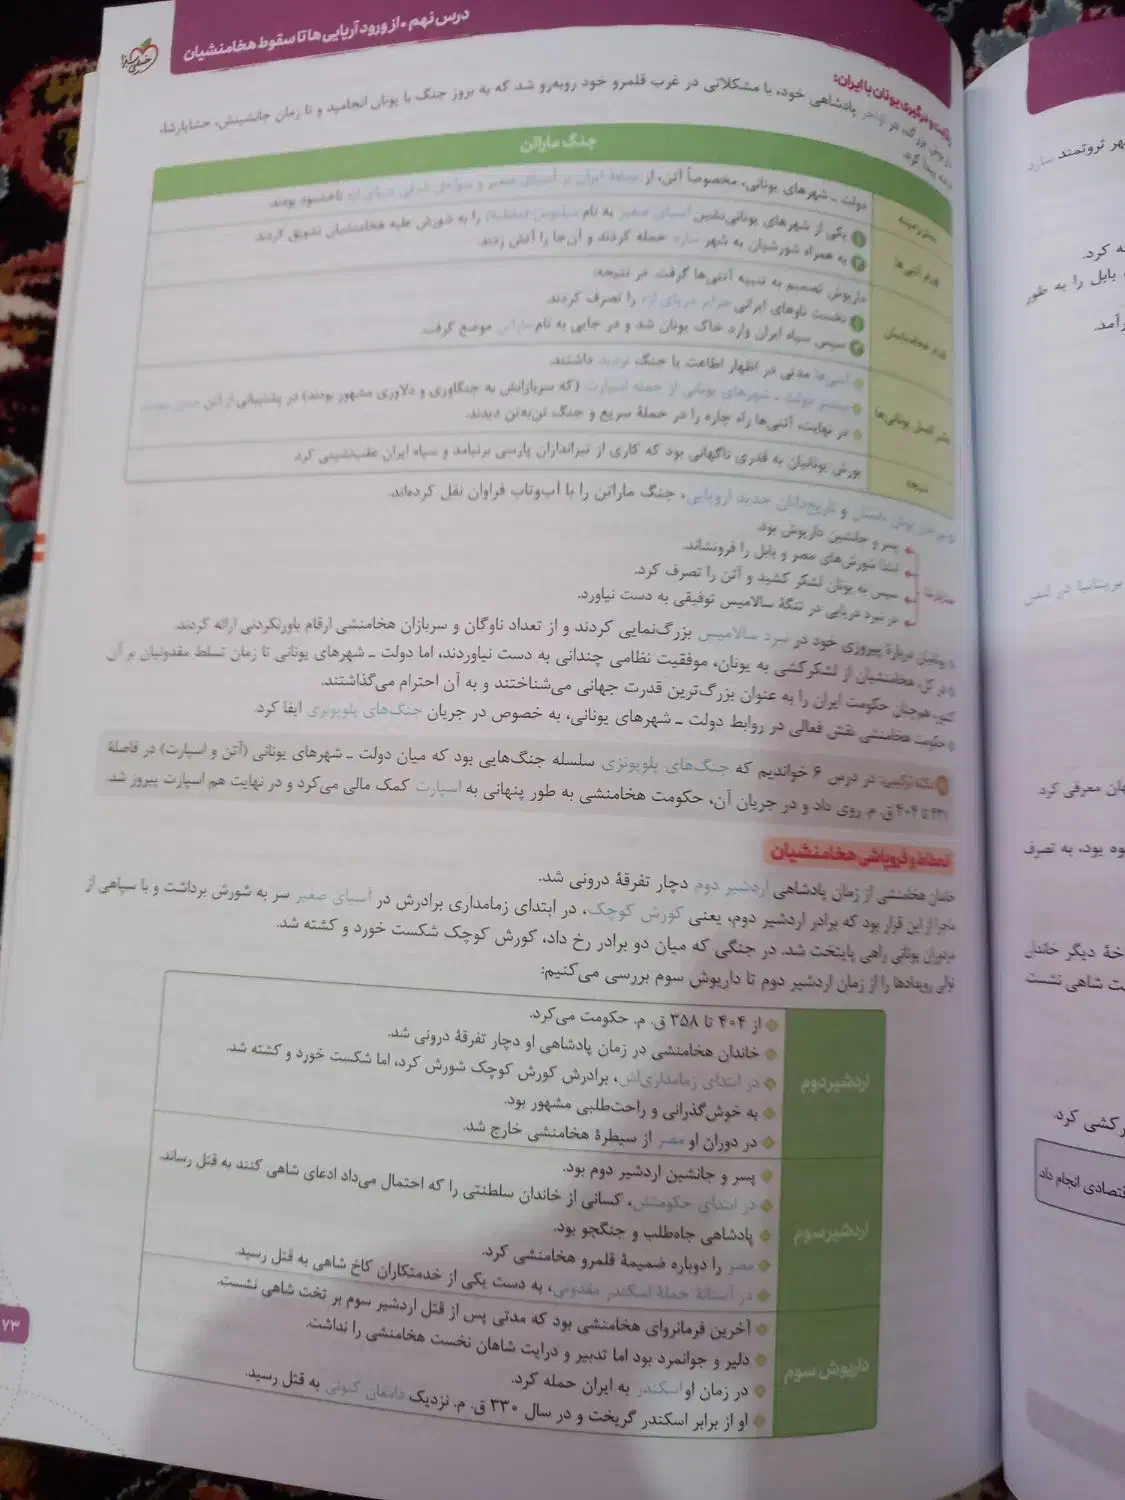 درس نهم • از ورود آریایی‌ها تا سقوط هخامنشیان
خیلی سبز
رقابت و درگیری یونان با ایران:
داریوش بزرگ، در اواخر پادشاهی خود، با مشکلاتی در غرب قلمرو خود روبه‌رو شد که به بروز جنگ با یونان انجامید و تا زمان جانشینش، خشایارشا،
ادامه پیدا کرد.
جنگ ماراتن
دولت ـ شهرهای یونانی، مخصوصاً آتن، از تسلط ایران بر آسیای صغیر و سواحل شرقی دریای اژه ناخشنود بودند.
اقدام آتنی‌ها
۱ یکی از شهرهای یونانی‌نشین آسیای صغیر به نام میلتوس (ملطیه) را به شورش علیه هخامنشیان تشویق کردند.
۲ به همراه شورشیان به شهر سارد حمله کردند و آن‌جا را آتش زدند.
اقدام هخامنشیان
داریوش تصمیم به تنبیه آتنی‌ها گرفت. در نتیجه:
۱ نخست ناوهای ایرانی جزایر دریای اژه را تصرف کردند.
۲ سپس سپاه ایران وارد خاک یونان شد و در جایی به نام ماراتن موضع گرفت.
عکس‌العمل یونانی‌ها
آتنی‌ها مدتی در اظهار اطاعت یا جنگ تردید داشتند.
بیشتر دولت ـ شهرهای یونانی از جمله اسپارت (که سربازانش به جنگاوری و دلاوری مشهور بودند) در پشتیبانی از آتن
در نهایت، آتنی‌ها راه چاره را در حملهٔ سریع و جنگ تن‌به‌تن دیدند.
نتیجه
یورش یونانیان به قدری ناگهانی بود که کاری از تیراندازان پارسی برنیامد و سپاه ایران عقب‌نشینی کرد.
یونان باستان و تاریخ‌دانان جدید اروپایی، جنگ ماراتن را با آب‌وتاب فراوان نقل کرده‌اند.
خشایارشا
پسر و جانشین داریوش بود.
ابتدا شورش‌های مصر و بابل را فرونشاند.
سپس به یونان لشکر کشید و آتن را تصرف کرد.
در نبرد دریایی در تنگهٔ سالامیس توفیقی به دست نیاورد.
یونانیان دربارهٔ پیروزی خود در نبرد سالامیس بزرگ‌نمایی کردند و از تعداد ناوگان و سربازان هخامنشی ارقام باورنکردنی ارائه کردند.
در کل، هخامنشیان از لشکرکشی به یونان، موفقیت نظامی چندانی به دست نیاوردند، اما دولت ـ شهرهای یونانی تا زمان تسلط مقدونیان بر آن
کشور، همچنان حکومت ایران را به عنوان بزرگ‌ترین قدرت جهانی می‌شناختند و به آن احترام می‌گذاشتند.
حکومت هخامنشی نقش فعالی در روابط دولت ـ شهرهای یونانی، به خصوص در جریان جنگ‌های پلوپونزی ایفا کرد.
نکته ترکیبی: در درس ۶ خواندیم که جنگ‌های پلوپونزی سلسله جنگ‌هایی بود که میان دولت ـ شهرهای یونانی (آتن و اسپارت) در فاصلهٔ
۴۳۱ تا ۴۰۴ ق. م. روی داد و در جریان آن، حکومت هخامنشی به طور پنهانی به اسپارت کمک مالی می‌کرد و در نهایت هم اسپارت پیروز شد.
انحطاط و فروپاشی هخامنشیان
خاندان هخامنشی از زمان پادشاهی اردشیر دوم دچار تفرقهٔ درونی شد.
ماجرا از این قرار بود که برادر اردشیر دوم، یعنی کورش کوچک، در ابتدای زمامداری برادرش در آسیای صغیر سر به شورش برداشت و با سپاهی از
مزدوران یونانی راهی پایتخت شد. در جنگی که میان دو برادر رخ داد، کورش کوچک شکست خورد و کشته شد.
توالی رویدادها را از زمان اردشیر دوم تا داریوش سوم بررسی می‌کنیم:
اردشیر دوم
از ۴۰۴ تا ۳۵۸ ق. م. حکومت می‌کرد.
خاندان هخامنشی در زمان پادشاهی او دچار تفرقهٔ درونی شد.
در ابتدای زمامداری‌اش، برادرش کورش کوچک شورش کرد، اما شکست خورد و کشته شد.
به خوش‌گذرانی و راحت‌طلبی مشهور بود.
در دوران او مصر از سیطرهٔ هخامنشی خارج شد.
اردشیر سوم
پسر و جانشین اردشیر دوم بود.
در ابتدای حکومتش، کسانی از خاندان سلطنتی را که احتمال می‌داد ادعای شاهی کنند به قتل رساند.
پادشاهی جاه‌طلب و جنگجو بود.
مصر را دوباره ضمیمهٔ قلمرو هخامنشی کرد.
در آستانهٔ حملهٔ اسکندر مقدونی، به دست یکی از خدمتکاران کاخ شاهی به قتل رسید.
داریوش سوم
آخرین فرمانروای هخامنشی بود که مدتی پس از قتل اردشیر سوم بر تخت شاهی نشست.
دلیر و جوانمرد بود اما تدبیر و درایت شاهان نخست هخامنشی را نداشت.
در زمان او اسکندر به ایران حمله کرد.
او از برابر اسکندر گریخت و در سال ۳۳۰ ق. م. نزدیک دامغان کنونی به قتل رسید.
۷۳
شهر ثروتمند سارد
ه کرد.
بابل را به طور
رآمد.
بریتانیا در لندن
هان معرفی کرد.
وه بود، به تصرف
خهٔ دیگر خاندان
ت شاهی نشست
رکشی کرد.
قتصادی انجام داد.